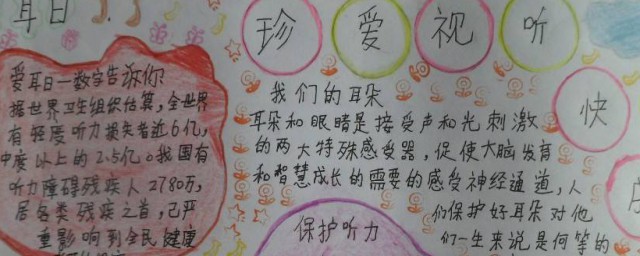 耳日
珍爱视听
快
爱耳日一数字告诉你
据世界卫生组织估算,全世界
有轻度听力损失者近6亿,
中度以上的2.5亿。我国有
听力障碍残疾人2780万,
居各类残疾之首,已严
重影响到全民健康
我们的耳朵
耳朵和眼睛是接受声和光刺激
的两大特殊感受器,促使大脑发育
和智慧成长的需要的感受神经通道,人
们保护好耳朵对他
们一生来说是何等的
保护听力